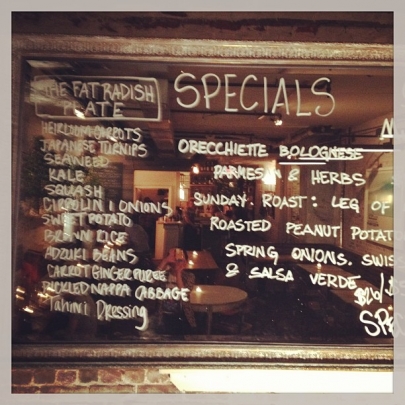 THE FAT RADISH
PLATE
HEIRLOOM CARROTS
JAPANESE TURNIPS
SEAWEED
KALE
SQUASH
CIPPOLINI ONIONS
SWEET POTATO
BROWN RICE
ADZUKI BEANS
CARROT GINGER PUREE
PICKLED NAPPA CABBAGE
Tahini Dressing
SPECIALS
ORECCHIETTE BOLOGNESE
PARMESAN & HERBS
SUNDAY ROAST: LEG OF
ROASTED PEANUT POTAT
SPRING ONIONS. SWIS
& SALSA VERDE